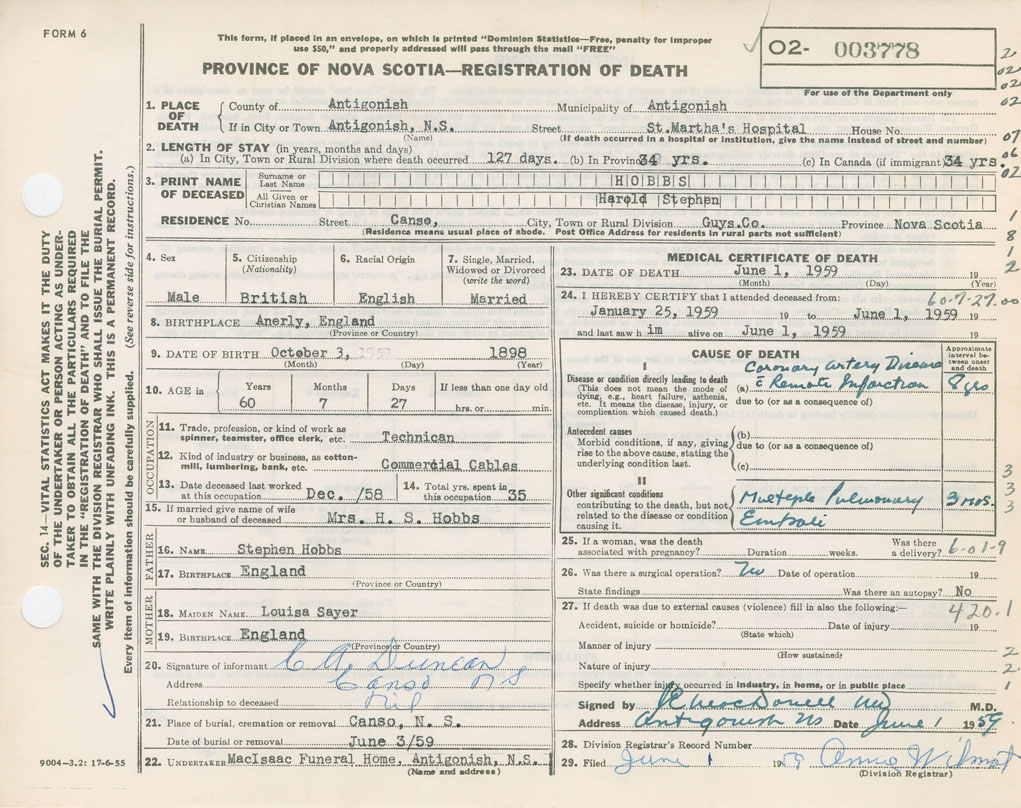 FORM 6
This form, if placed in an envelope, on which is printed "Dominion Statistics—Free, penalty for improper
use $50," and properly addressed will pass through the mail "FREE"
PROVINCE OF NOVA SCOTIA—REGISTRATION OF DEATH
02- 003778
For use of the Department only
1. PLACE OF DEATH
County of Antigonish Municipality of Antigonish
If in City or Town Antigonish, N.S. Street St.Martha's Hospital House No.
(Name) (If death occurred in a hospital or institution, give the name instead of street and number)
2. LENGTH OF STAY (in years, months and days)
(a) In City, Town or Rural Division where death occurred 127 days. (b) In Province 34 yrs. (c) In Canada (if immigrant) 34 yrs.
3. PRINT NAME OF DECEASED
Surname or Last Name HOBBS
All Given or Christian Names Harold Stephen
RESIDENCE No. Street Canso, City, Town or Rural Division Guys.Co. Province Nova Scotia
(Residence means usual place of abode. Post Office Address for residents in rural parts not sufficient)
4. Sex
Male
5. Citizenship
(Nationality)
British
6. Racial Origin
English
7. Single, Married,
Widowed or Divorced
(write the word)
Married
8. BIRTHPLACE Anerly, England
(Province or Country)
9. DATE OF BIRTH October 3, 1898
(Month) (Day) (Year)
10. AGE in
Years Months Days If less than one day old
60 7 27 hrs. or min.
OCCUPATION
11. Trade, profession, or kind of work as
spinner, teamster, office clerk, etc. Technican
12. Kind of industry or business, as cotton-
mill, lumbering, bank, etc. Commercial Cables
13. Date deceased last worked
at this occupation Dec. /58
14. Total yrs. spent in
this occupation 35
15. If married give name of wife
or husband of deceased Mrs. H. S. Hobbs
FATHER
16. NAME Stephen Hobbs
17. BIRTHPLACE England
(Province or Country)
MOTHER
18. MAIDEN NAME Louisa Sayer
19. BIRTHPLACE England
(Province or Country)
20. Signature of informant C A Duncan
Address Canso NS
Relationship to deceased Nil
21. Place of burial, cremation or removal Canso, N. S.
Date of burial or removal June 3/59
22. UNDERTAKER MacIsaac Funeral Home, Antigonish, N.S.
(Name and address)
MEDICAL CERTIFICATE OF DEATH
23. DATE OF DEATH June 1, 1959 19
(Month) (Day) (Year)
24. I HEREBY CERTIFY that I attended deceased from: 60-7-27.00
January 25, 1959 19 to June 1, 1959 19
and last saw him alive on June 1, 1959 19
CAUSE OF DEATH
Approximate
interval be-
tween onset
and death
I
Disease or condition directly leading to death
(This does not mean the mode of
dying, e.g., heart failure, asthenia,
etc. It means the disease, injury, or
complication which caused death.)
Coronary Artery Disease
(a) c̄ Remote Infarction 8 yrs
due to (or as a consequence of)
Antecedent causes
Morbid conditions, if any, giving
rise to the above cause, stating the
underlying condition last.
(b)
due to (or as a consequence of)
(c)
II
Other significant conditions
contributing to the death, but not
related to the disease or condition
causing it.
Multiple Pulmonary 3 mos.
Emboli
25. If a woman, was the death
associated with pregnancy? Duration weeks. Was there
a delivery? 6-01-9
26. Was there a surgical operation? No Date of operation 19
State findings Was there an autopsy? No
27. If death was due to external causes (violence) fill in also the following:— 420.1
Accident, suicide or homicide? Date of injury 19
(State which)
Manner of injury
(How sustained)
Nature of injury
Specify whether injury occurred in industry, in home, or in public place
Signed by M.D.
Address Antigonish NS Date June 1 1959
28. Division Registrar's Record Number
29. Filed June 1 1959 Annie Wilmot
(Division Registrar)
SEC. 14—VITAL STATISTICS ACT MAKES IT THE DUTY
OF THE UNDERTAKER OR PERSON ACTING AS UNDER-
TAKER TO OBTAIN ALL THE PARTICULARS REQUIRED
IN THE "REGISTRATION OF DEATH" AND TO FILE THE
SAME WITH THE DIVISION REGISTRAR WHO SHALL ISSUE THE BURIAL PERMIT.
WRITE PLAINLY WITH UNFADING INK. THIS IS A PERMANENT RECORD.
Every item of information should be carefully supplied. (See reverse side for instructions.)
9004—3.2: 17-6-55
02
02
02
07
06
02
1
8
1
2
3
3
3
2
2
1